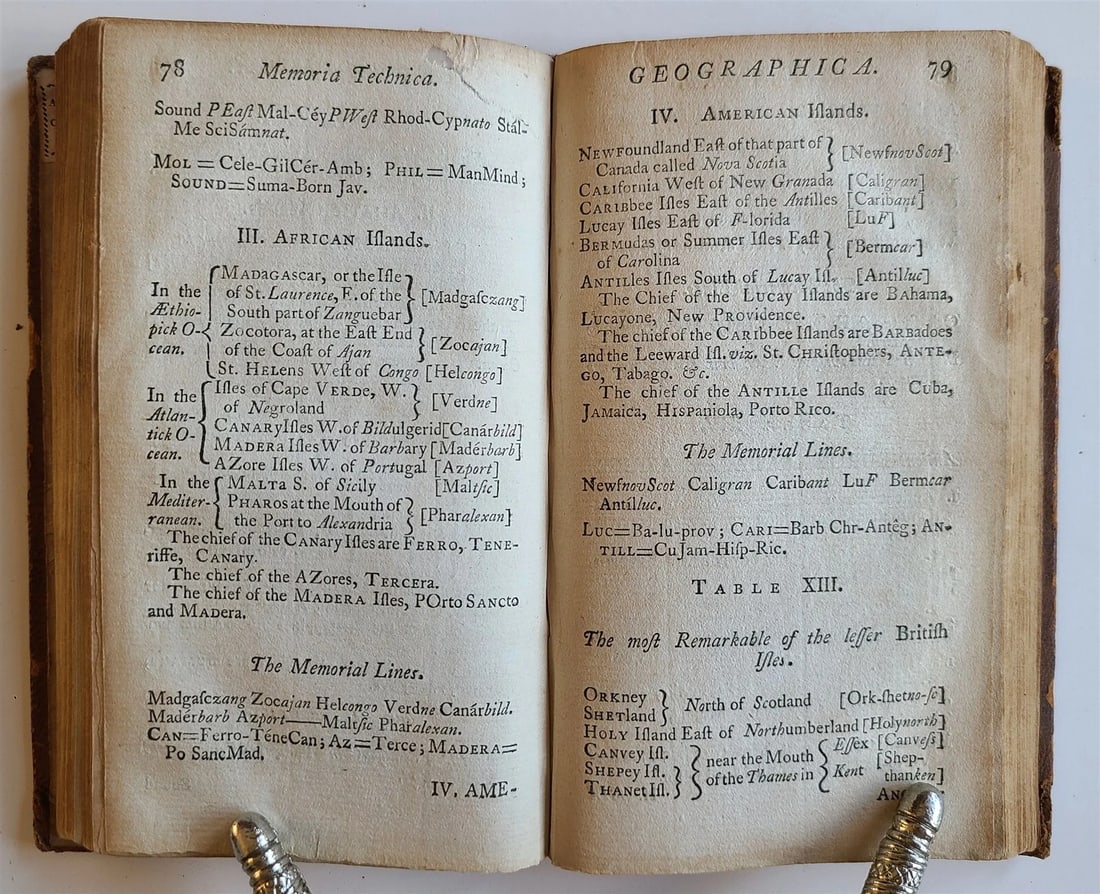 78 Memoria Technica.
Sound PEaſt Mal-CéyPWeſt Rhod-Cypnato Stál-
Me SciSámnat.
MOL = Cele-GilCér-Amb; PHIL=ManMind;
SOUND=Suma-Born Jav.
III. AFRICAN Iſlands.
In the
Æthio-
pick O-
cean.
MADAGAſcar, or the Iſle
of St. Laurence, E. of the
South part of Zanguebar
[Madgaſczang]
Zocotora, at the Eaſt End
of the Coaſt of Ajan
[Zocajan]
St. HELENS Weſt of Congo [Helcongo]
In the
Atlan-
tick O-
cean.
Iſles of Cape VERDE, W.
of Negroland
[Verdne]
CANARY Iſles W. of Bildulgerid [Canárbild]
MADERA Iſles W. of Barbary [Madérbarb]
AZore Iſles W. of Portugal [Azport]
In the
Mediter-
ranean.
MALTA S. of Sicily [Maltſic]
PHAROS at the Mouth of
the Port to Alexandria
[Pharalexan]
The chief of the CANary Iſles are FERRO, TENE-
riffe, CANary.
The chief of the AZores, TERCEra.
The chief of the MADERA Iſles, POrto SANCto
and MADera.
The Memorial Lines.
Madgaſczang Zocajan Helcongo Verdne Canárbild.
Madérbarb Azport——Maltſic Pharalexan.
CAN=Ferro-TéneCan; Az=Terce; MADERA=
Po SancMad.
IV. AME-
GEOGRAPHICA. 79
IV. AMERICAN Iſlands.
NEWFoundland Eaſt of that part of
Canada called Nova Scotia
[NewfnovScot]
CALIfornia Weſt of New Granada [Caligran]
CARIBbee Iſles Eaſt of the Antilles [Caribant]
Lucay Iſles Eaſt of F-lorida [LuF]
BERMudas or Summer Iſles Eaſt
of Carolina
[Bermcar]
ANTILles Iſles South of Lucay Iſl. [Antilluc]
The Chief of the LUCAY Iſlands are BAhama,
LUcayone, New PROVidence.
The chief of the CARIbbee Iſlands are BARBadoes
and the Leeward Iſl. viz. St. CHRiſtophers, ANTE-
GO, Tabago. &c.
The chief of the ANTILLE Iſlands are CUba,
JAMaica, HISPaniola, Porto RICo.
The Memorial Lines.
NewfnovScot Caligran Caribant LuF Bermcar
Antílluc.
LUC=Ba-lu-prov; CARI=Barb Chr-Antég; AN-
TILL=CuJam-Hiſp-Ric.
TABLE XIII.
The moſt Remarkable of the leſſer Britiſh
Iſles.
ORKney
SHETland
North of Scotland [Ork-ſhetno-ſc]
HOLY Iſland Eaſt of Northumberland [Holynorth]
CANVey Iſl.
SHEPey Iſl.
THANet Iſl.
near the Mouth
of the Thames in
Eſſex [Canveſs]
Kent [Shep-
thanken]